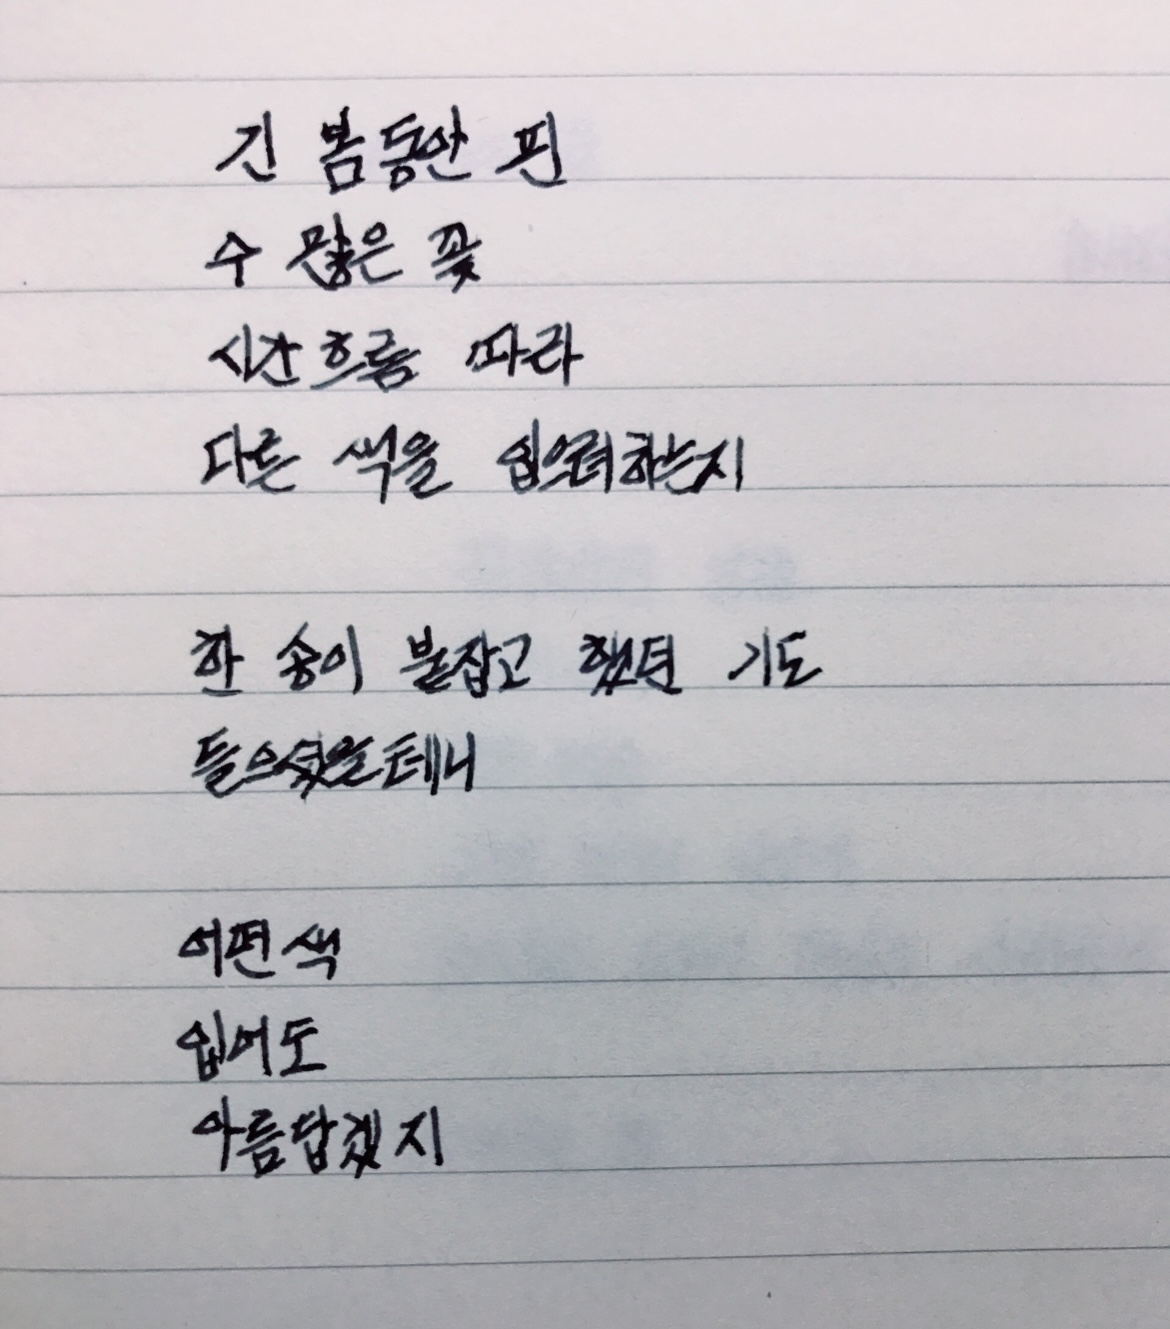 긴 봄동안 핀
수 많은 꽃
시간흐름 따라
다른 색을 입으려하는지
한 송이 붙잡고 했던 기도
들으셨을테니
어떤색
입어도
아름답겠지